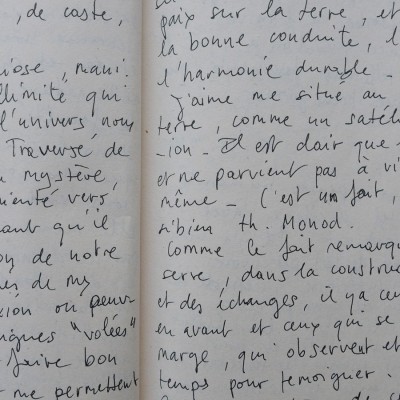 , de caste,
iose, mani.
llimité qui
l'univers nous
Traversé de
mystère,
ienté vers
ant qu'il
on de notre
es de my
xion ou peuv
nigues "volées"
faire bon
me permettent
paix sur la terre, et
la bonne conduite, l
l'harmonie durable -
J'aime me situe au
terre, comme un satéli
-ion - Il est clair que
et ne parvient pas à vi
même - C'est un fait,
si bien th. Monod.
Comme le fait remarqu
serre, dans la construc
et des échanges, il y a ceu
en avant et ceux qui se
marge, qui observent et
temps pour temoigner.